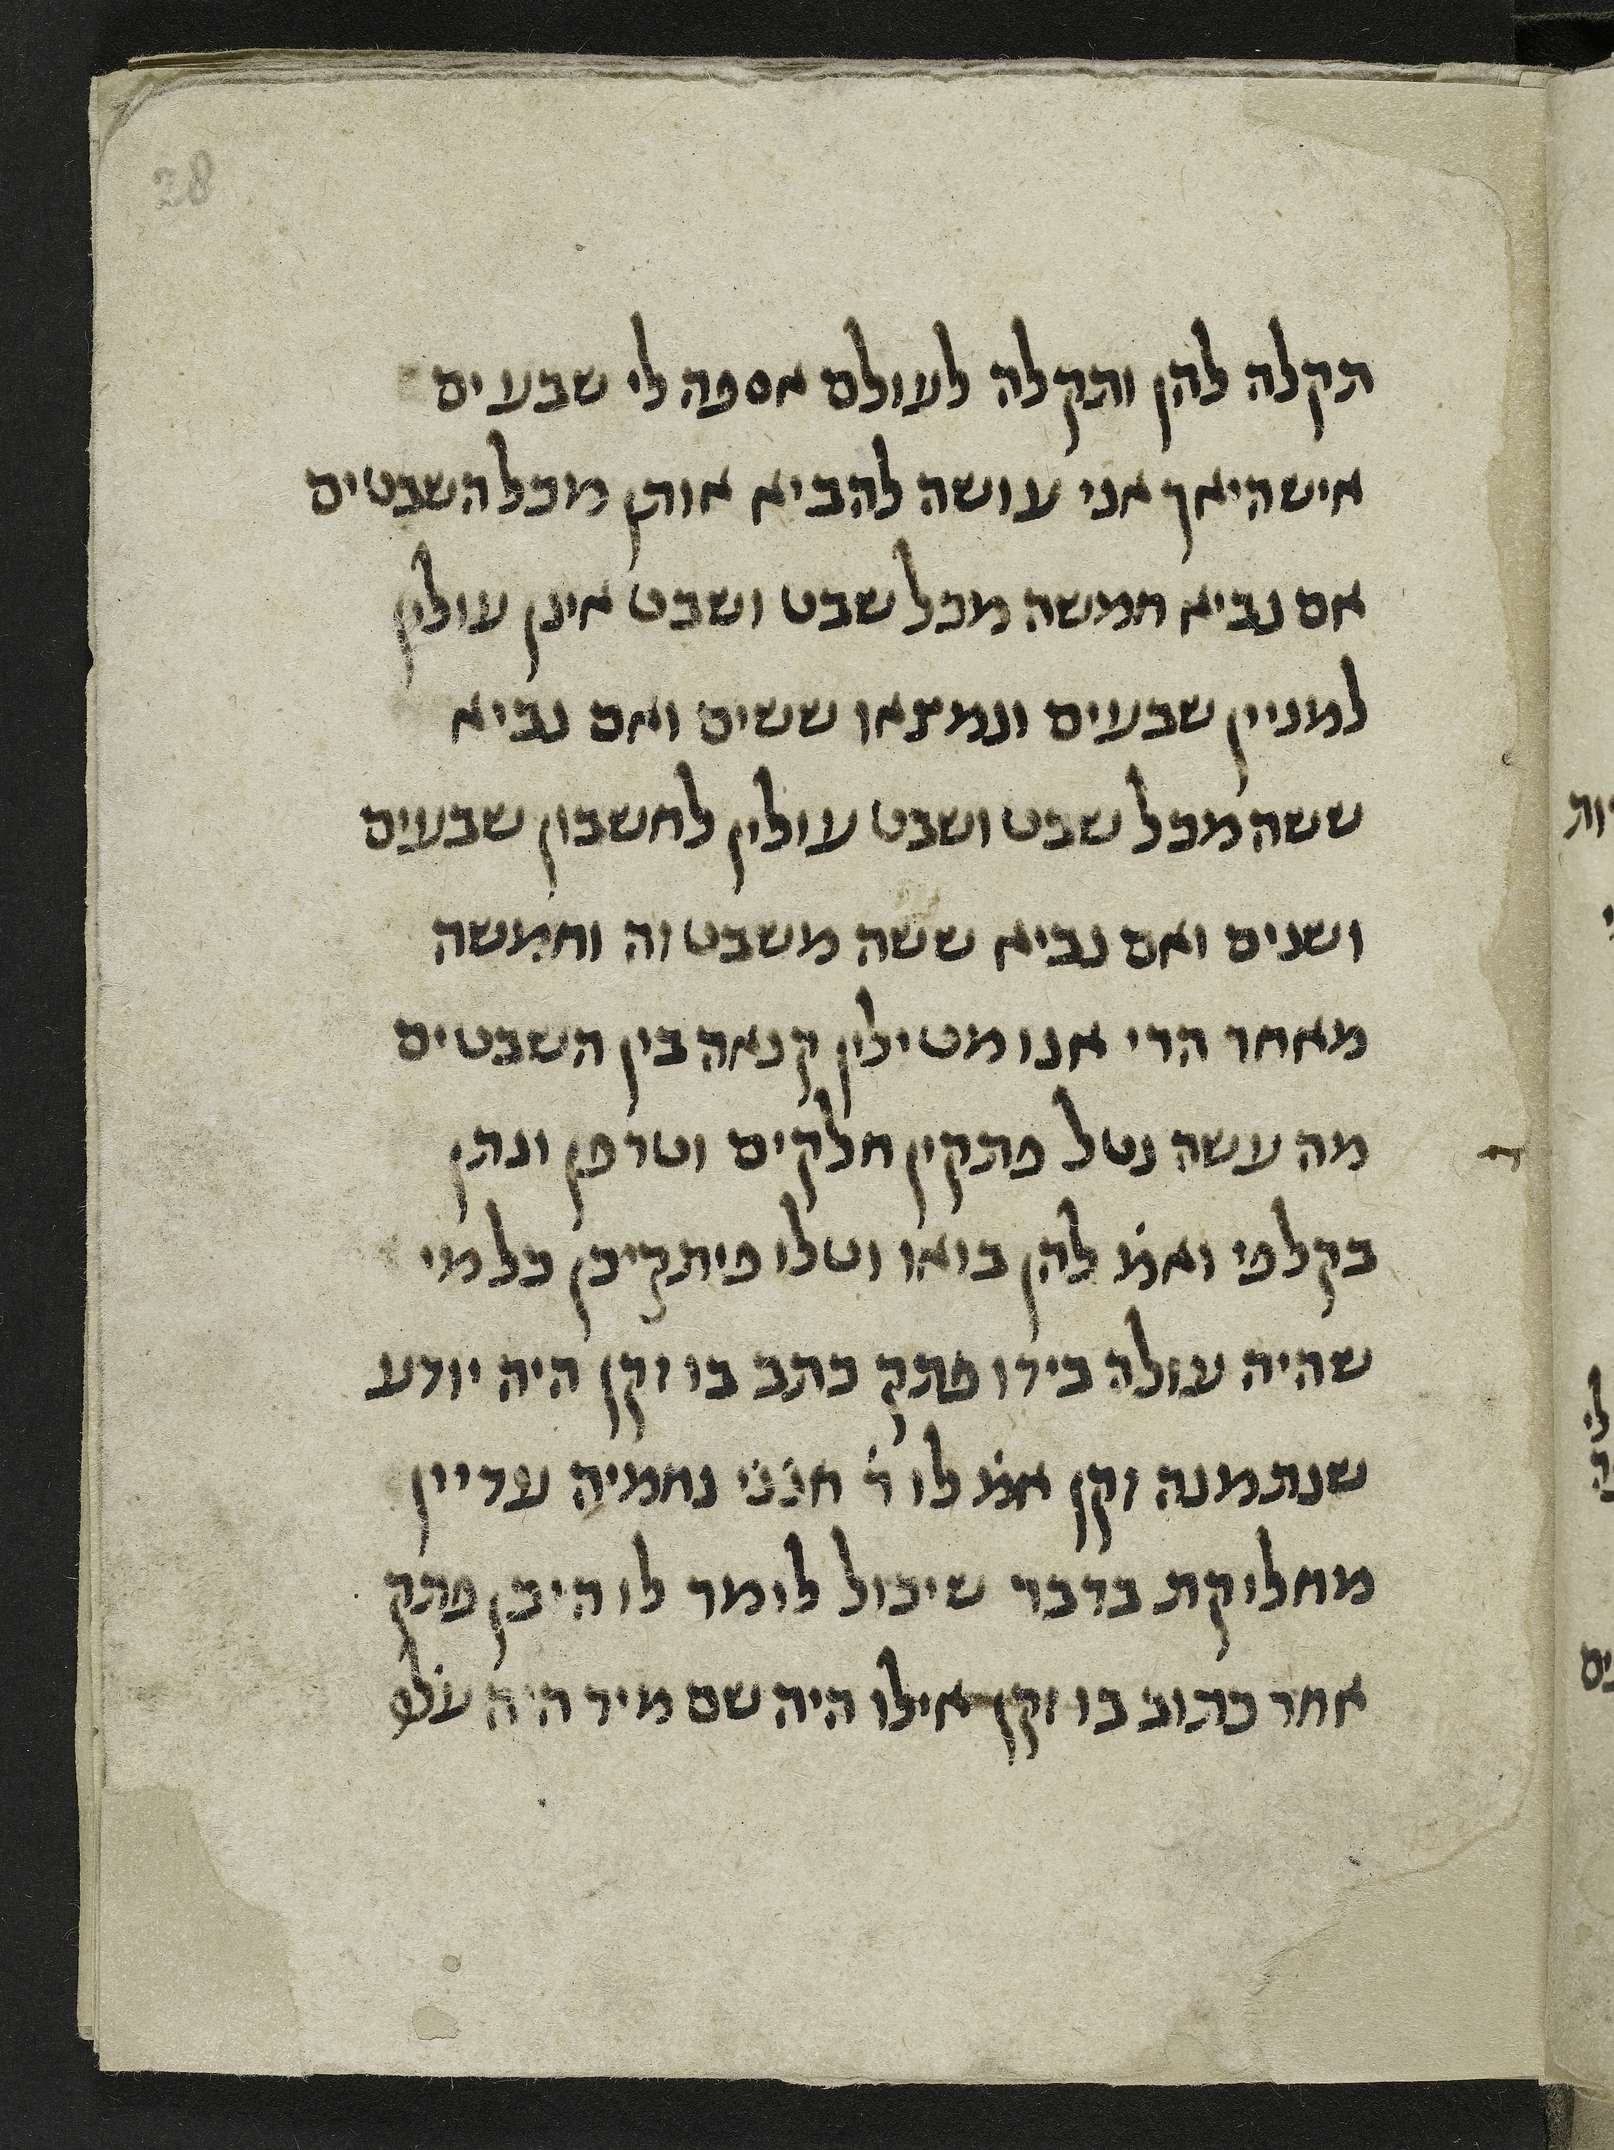 28
תקלה להן ותקלה לעולם אספה לי שבעים
איש היאך אני עושה להביא אותן מכל השבטים
אם נביא חמשה מכל שבט ושבט אינן עולין
למניין שבעים ונמצאו ששים ואם נביא
ששה מכל שבט ושבט עולין לחשבון שבעים
ושנים ואם נביא ששה משבט זה וחמשה
מאחר הרי אנו מטילין קנאה בין השבטים
מה עשה נטל פתקין חלקים וטרפן ונתן
בקלפי ואמ׳ להן בואו וטלו פיתקיכן כל מי
שהיה עולה בידו פתק כתב בו זקן היה יודע
שנתמנה זקן אמ׳ לו ר׳ חננ׳ נחמיה עדיין
מחליקת בדבר שיכול לומר לו היכן פתק
אחר כתוב בו זקן אילו היה שם מיד היה